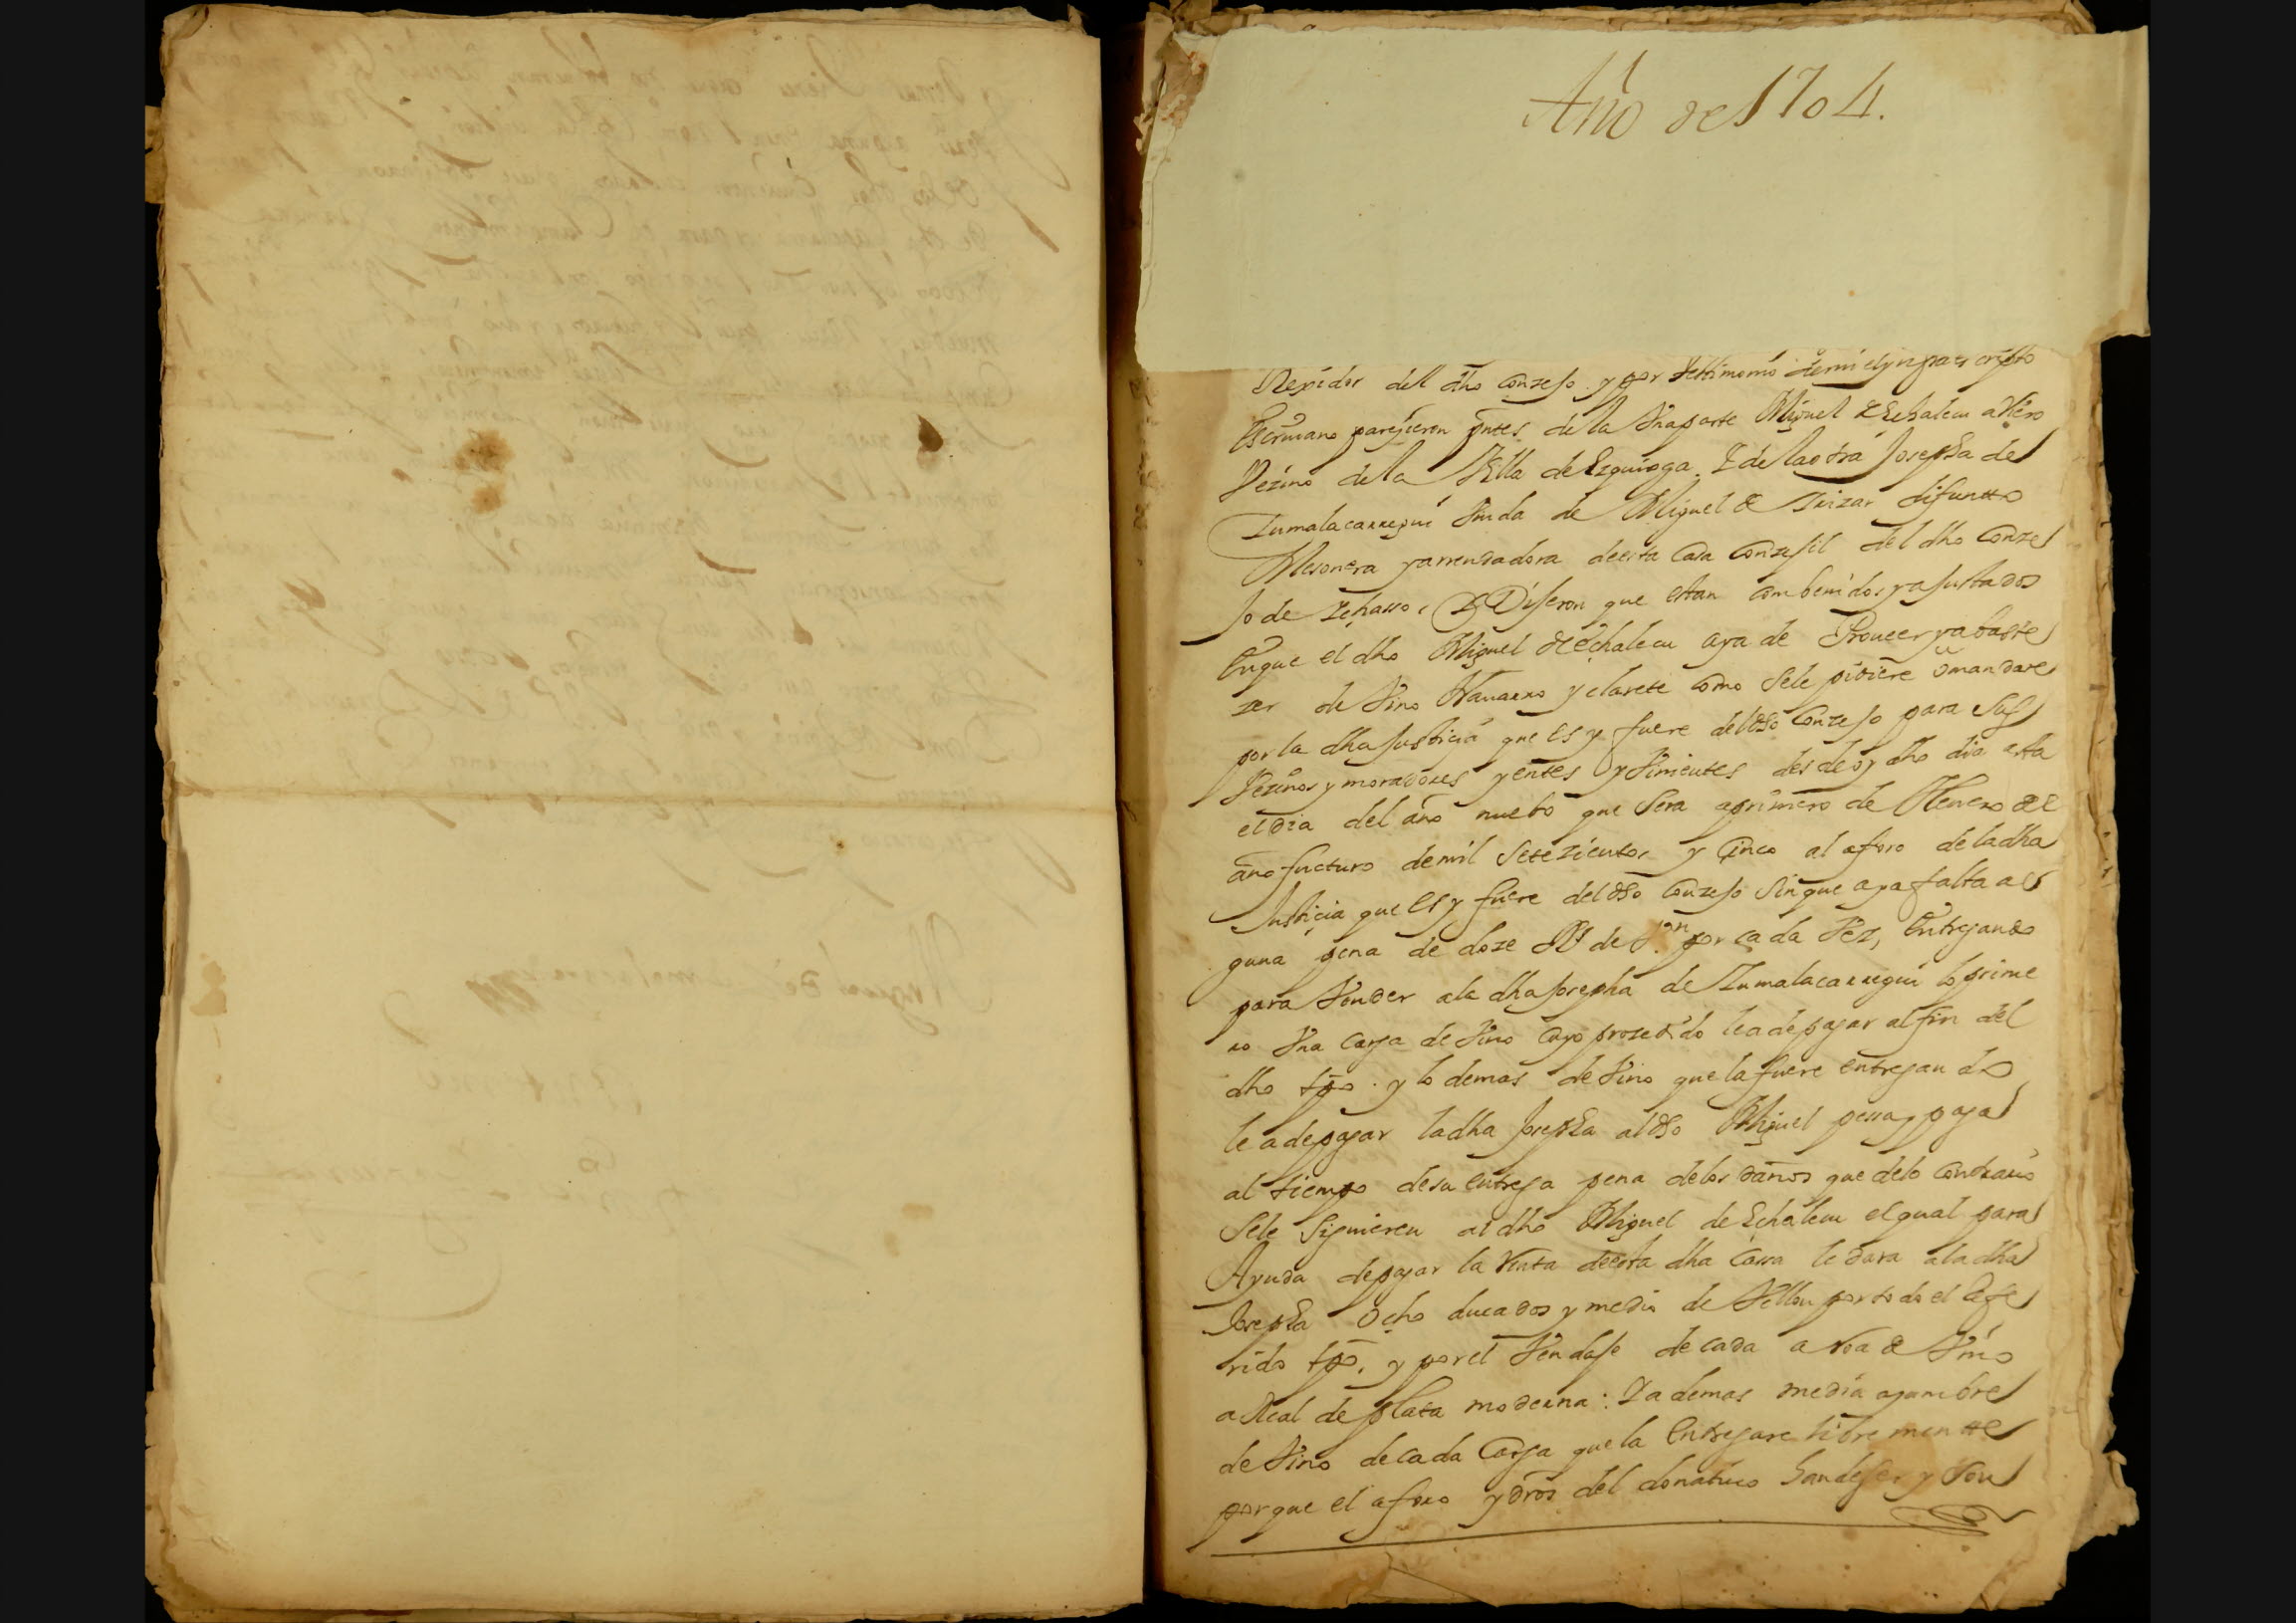 Año de 1704.
Rexidor dell dho Conzejo y por testimonio de mi el ynfraescripto
Escriuano pareçieron pntes de la Vna parte Miguel de Echalecu
Vezino de la Villa de Ezquioga. Y de la otra Josepha de
Zumalacarregui Viuda de Miguel de Irizar difuntto
Mesonera y arrendadora de esta Casa Conzejil del dho Conze
jo de Ichasso, Y Dijeron que estan combenidos y ajustados
En que el dho Miguel de Echalecu aya de Proueer y abaste
zer de Vino Nauarro y clarete como sele pidiere o mandare
por la dha Justicia que es y fuere del dho Conzejo para sus
Vezinos y moradores yentes y Vinientes desde oy dho dia asta
el dia del año nuebo que sera a primero de Henero de
año fucturo de mil setezientos y Cinco al aforo de la dha
Justicia que es y fuere del dho Conzejo sin que aya falta al
guna pena de doze Rs de Von por cada Vez, Entregando
para Vender a la dha Josepha de Zumalacarregui lo prime
ro Vna Carga de Vino Cuyo prozedido le a de pagar al fin del
dho tpo. y lo demas de Vino que la fuere entregando
le a de pagar la dha Josepha al dho Miguel pessa y paga
al tiempo de su entrega pena de los daños que de lo Contrario
sele siguieren al dho Miguel de Echalecu el qual para
Ayuda de pagar la Renta de esta dha Cassa le dara a la dha
Josepha Ocho ducados y medio de Vellon por todo el Refe
rido tpo. y por el Vendaje de cada aroa de Vino
a Real de plata moderna: Y a demas media azumbre
de Vino de cada Carga que la Entregare libre mentte
porque el aforo y dros del donatiuo han de ser y son